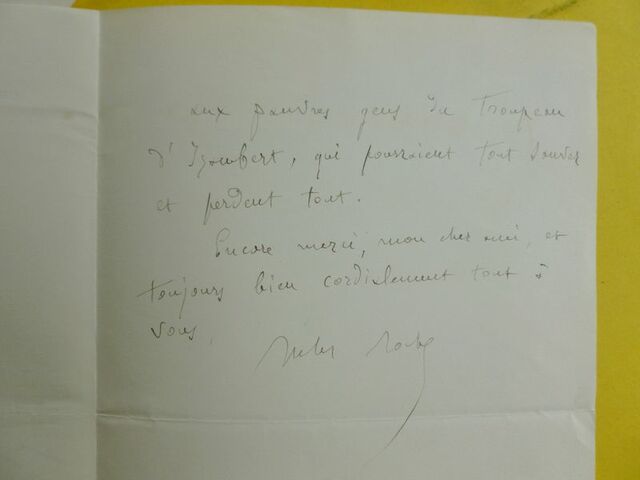 aux pauvres gens du Troupeau
d'Isambert, qui pourraient tout sauver
et perdent tout.
Encore merci, mon cher ami, et
toujours bien cordialement tout à
vous,
Jules Roche